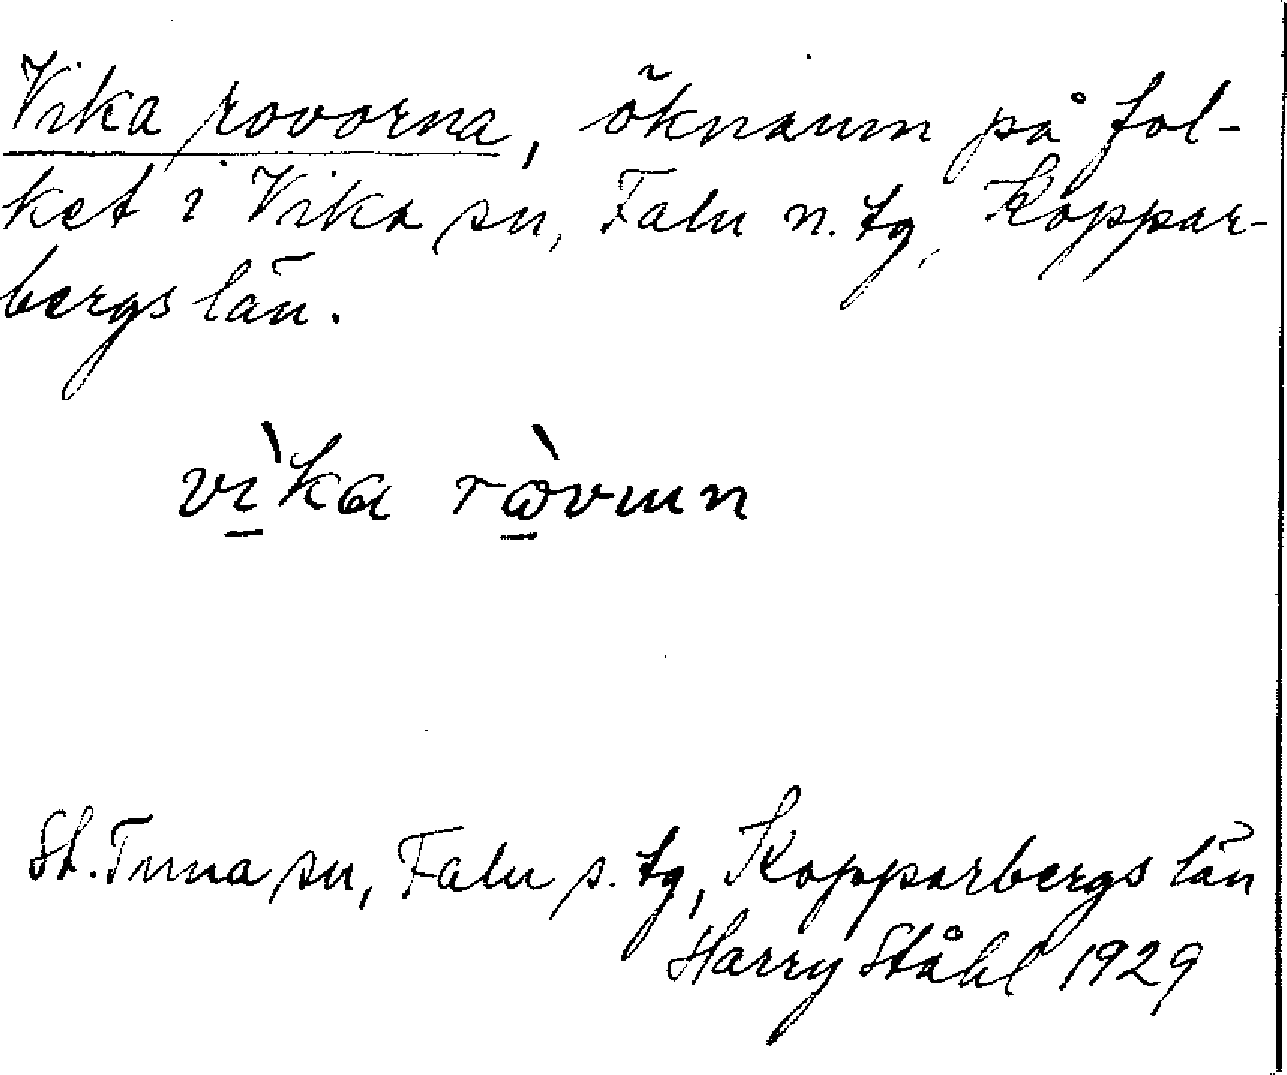 Vika rovorna, öknamn på fol-
ket i Vika sn, Falu n. tg, Koppar-
bergs län.
vìka ròvun
St. Tuna sn, Falu s. tg, Kopparbergs län
Harry Ståhl 1929